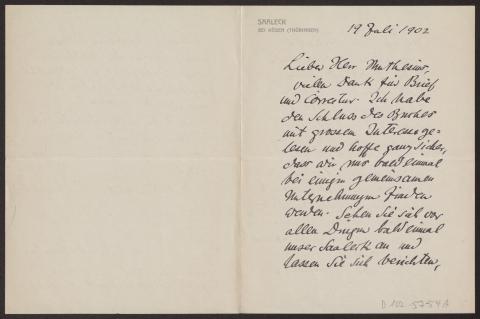 SAALECK
BEI KÖSEN (THÜRINGEN)
19 Juli 1902
Lieber Herr Muthesius,
vielen Dank für Brief
und Correctur. Ich habe
den Schluss des Buches
mit grossem Interesse ge-
lesen und hoffe ganz sicher,
dass wir uns bald einmal
bei einigen gemeinsamen
Unternehmungen finden
werden. Sehen Sie sich vor
allen Dingen bald einmal
unser Saaleck an und
lassen Sie sich berichten,
D 102-5754A